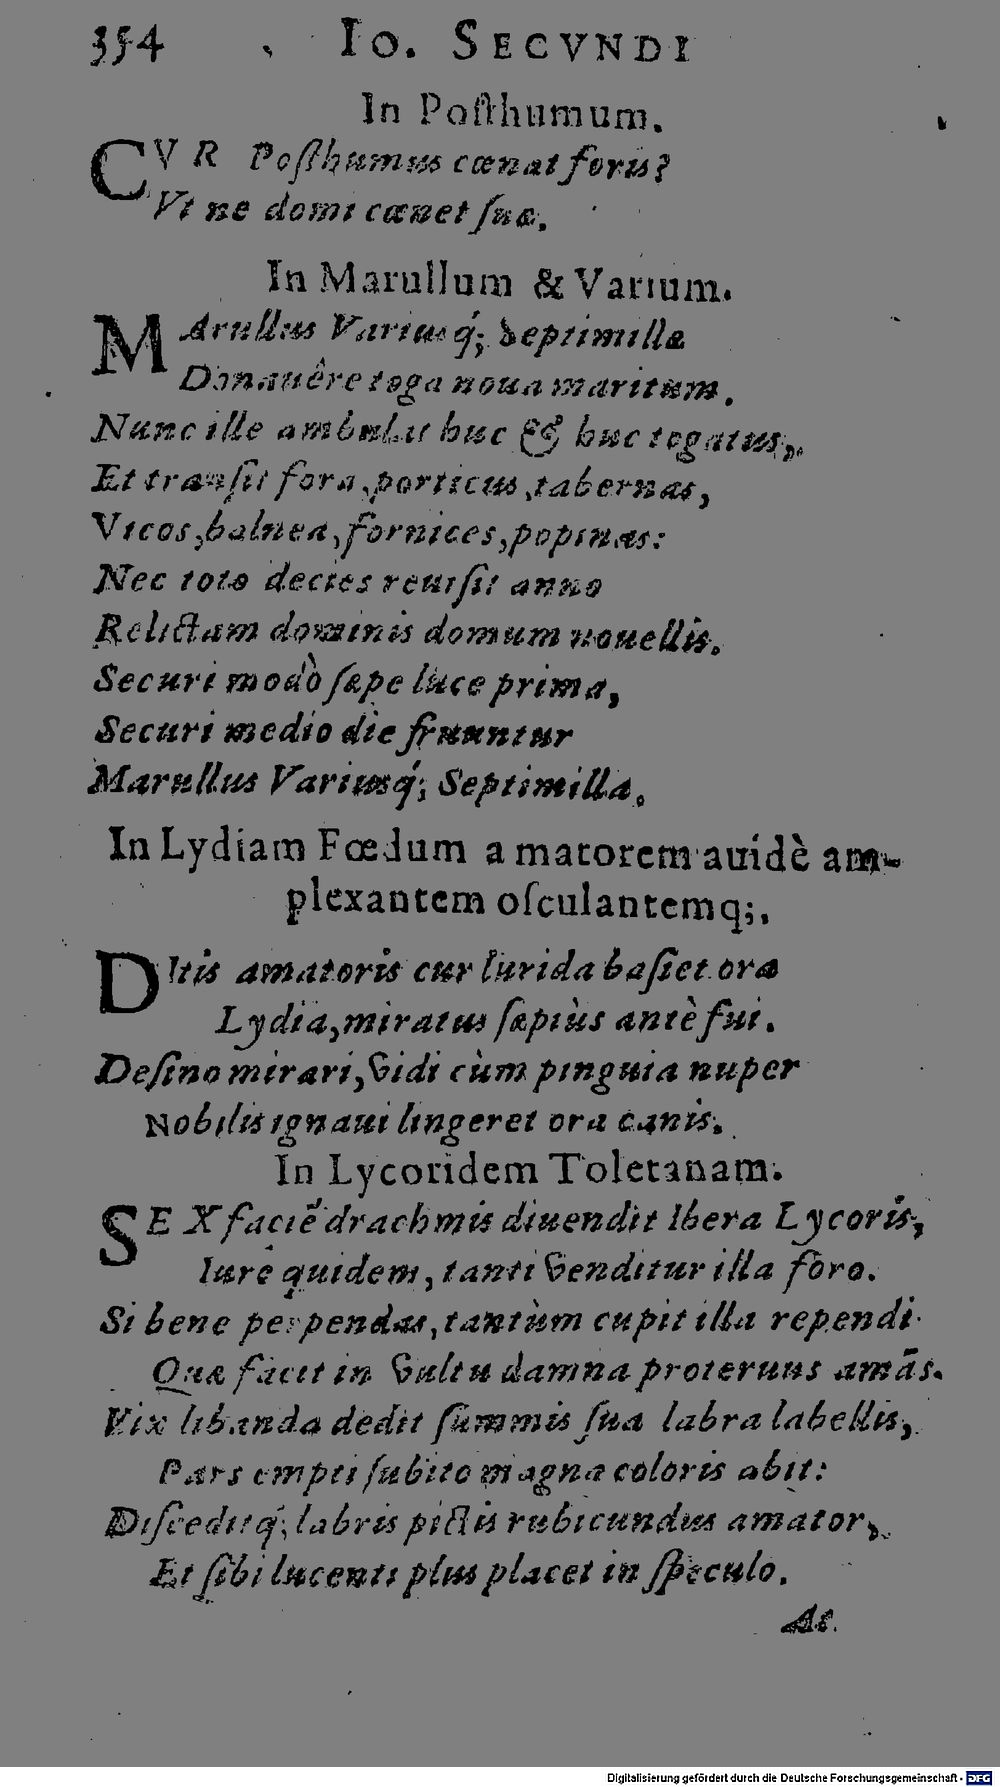 354 Io. Secvndi
In Poſthumum.
CVR Poſthumus cœnat foris?
Vt ne domi cœnet ſuæ.
In Marullum & Varium.
MArullus Variusq́; Septimillæ
Donauêre toga noua maritum.
Nunc ille ambulat huc & huc togatus,
Et tranſit fora, porticus, tabernas,
Vicos, balnea, fornices, popinas:
Nec toto decies reuiſit anno
Relictam dominis domum nouellis.
Securi modò ſæpe luce prima,
Securi medio die fruuntur
Marullus Variusq́; Septimilla.
In Lydiam Fœdum amatorem auidè am-
plexantem oſculantemq;.
DItis amatoris cur lurida baſiet ora
Lydia, miratus ſæpiùs antè fui.
Deſino mirari, vidi cùm pinguia nuper
Nobilis ignaui lingeret ora canis.
In Lycoridem Toletanam.
SEX faciē drachmis diuendit Ibera Lycoris,
Iure quidem, tanti venditur illa foro.
Si bene perpendas, tantùm cupit illa rependi
Quæ facit in vultu damna proteruus amās.
Vix libanda dedit ſummis ſua labra labellis,
Pars empti ſubito magna coloris abit:
Diſceditq́; labris pictis rubicundus amator,
Et ſibi lucenti plus placet in ſpeculo.
At.
Digitalisierung gefördert durch die Deutsche Forschungsgemeinschaft - DFG